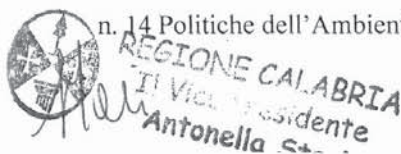 n. 14 Politiche dell'Ambien
REGIONE CALABRIA
Il Vice Presidente
Antonella